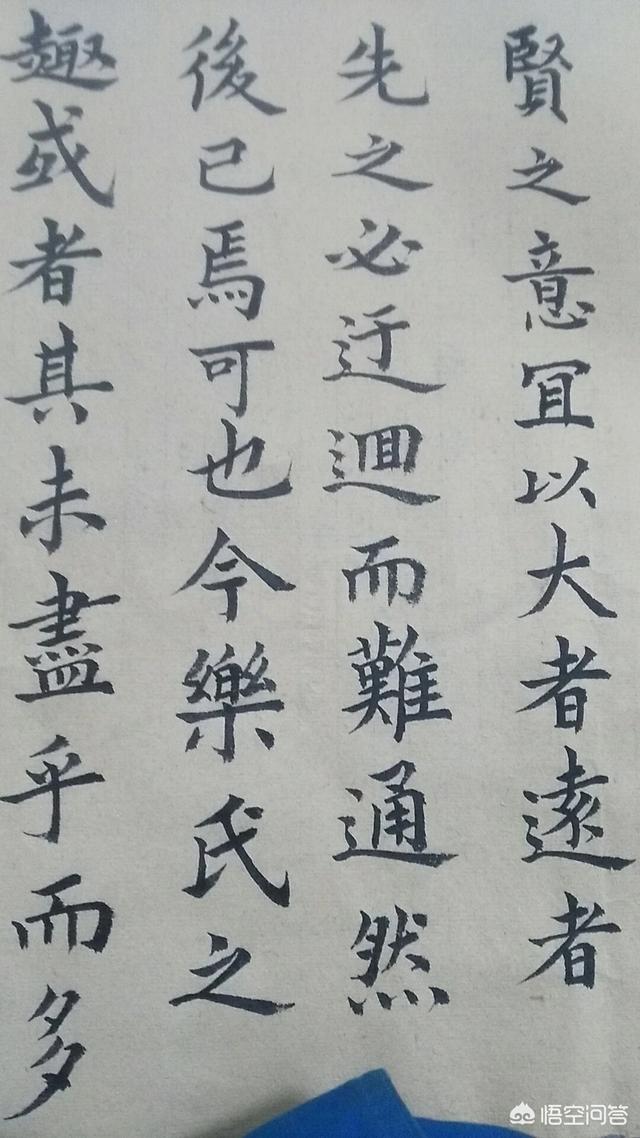 賢之意冝以大者遠者
先之必迂迴而難通然
後已焉可也今樂氏之
趣或者其未盡乎而多
悟空问答